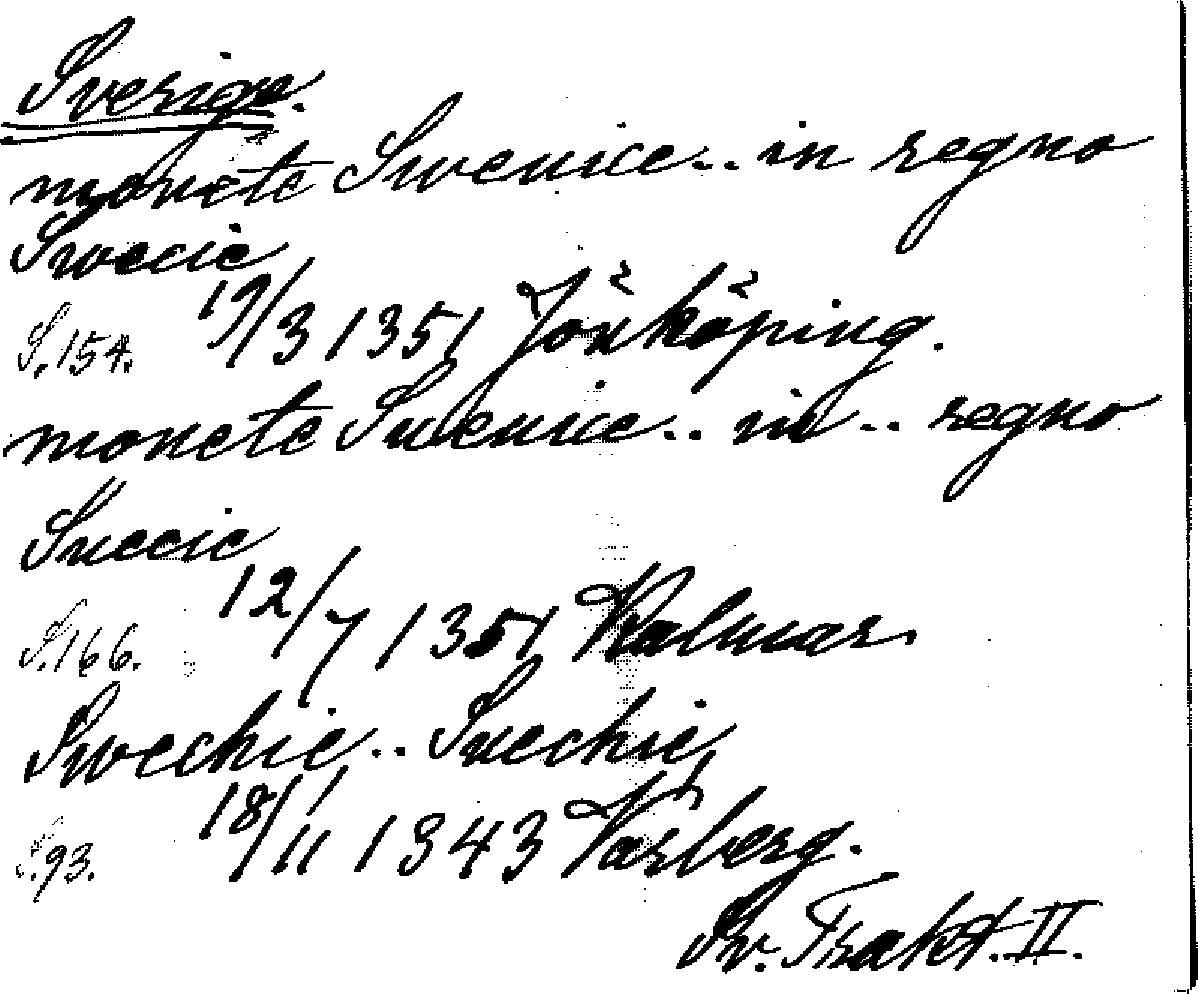 Sverige.
monete Swenice.. in regno
Swecie
S. 154. 19/3 1351 Jönköping.
monete Suenice.. in.. regno
Suecie
S. 166. 12/7 1351 Kalmar
Swechie.. Suechie
S. 93. 18/11 1343 Varberg.
Sv. Trakt. II.